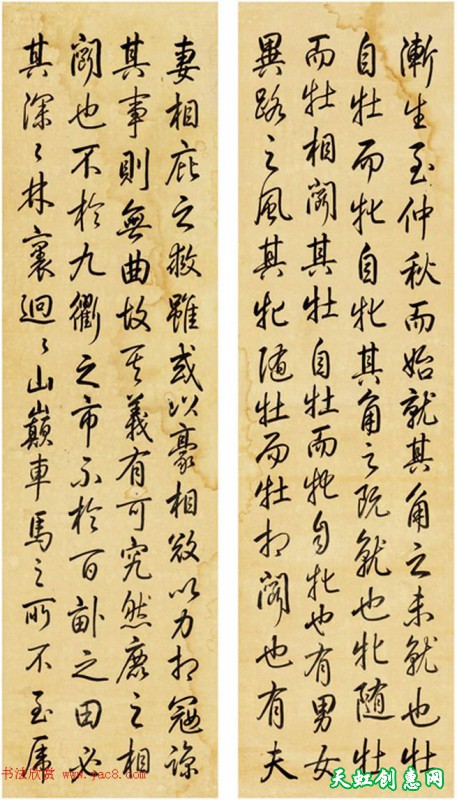 漸生至仲秋而始就其角之未就也牡
自牡而牝自牝其角之既就也牝随牡
而牡相鬭其牡自牡而牝自牝也有男女
異路之風其牝随牡而牡相鬭也有夫
妻相庇之救雖或以豪相致以力相冠諒
其事則無曲故其義有可究然鹿之相
鬭也不於九衢之市不於百畝之田必
其深〻林裏迴〻山巔車馬之所不至席
书法欣赏 www.yac8.com
天虹创惠网